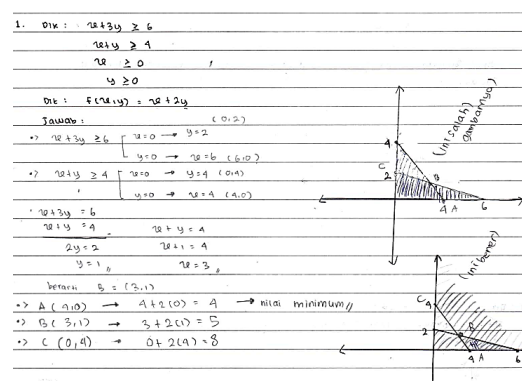 1. Dik : x+3y ≥ 6
x+y ≥ 4
x ≥ 0
y ≥ 0
Dit : F(x,y) = x+2y
Jawab :
•> x+3y ≥6 x=0 → y=2 (0,2)
y=0 → x=6 (6,0)
•> x+y ≥ 4 x=0 → y=4 (0,4)
y=0 → x=4 (4,0)
x+3y = 6
x+y = 4
2y = 2
y = 1 //
x+y = 4
x+1 = 4
x = 3 //
berarti B = (3,1)
•> A (4,0) → 4+2(0) = 4 → nilai minimum //
•> B(3,1) → 3+2(1) = 5
•> C (0,4) → 0+2(4) = 8
(ini salah)
gambarnya)
4
C
2
B
4 A 6
(ini bener)
C 4
2
B
4 A 6